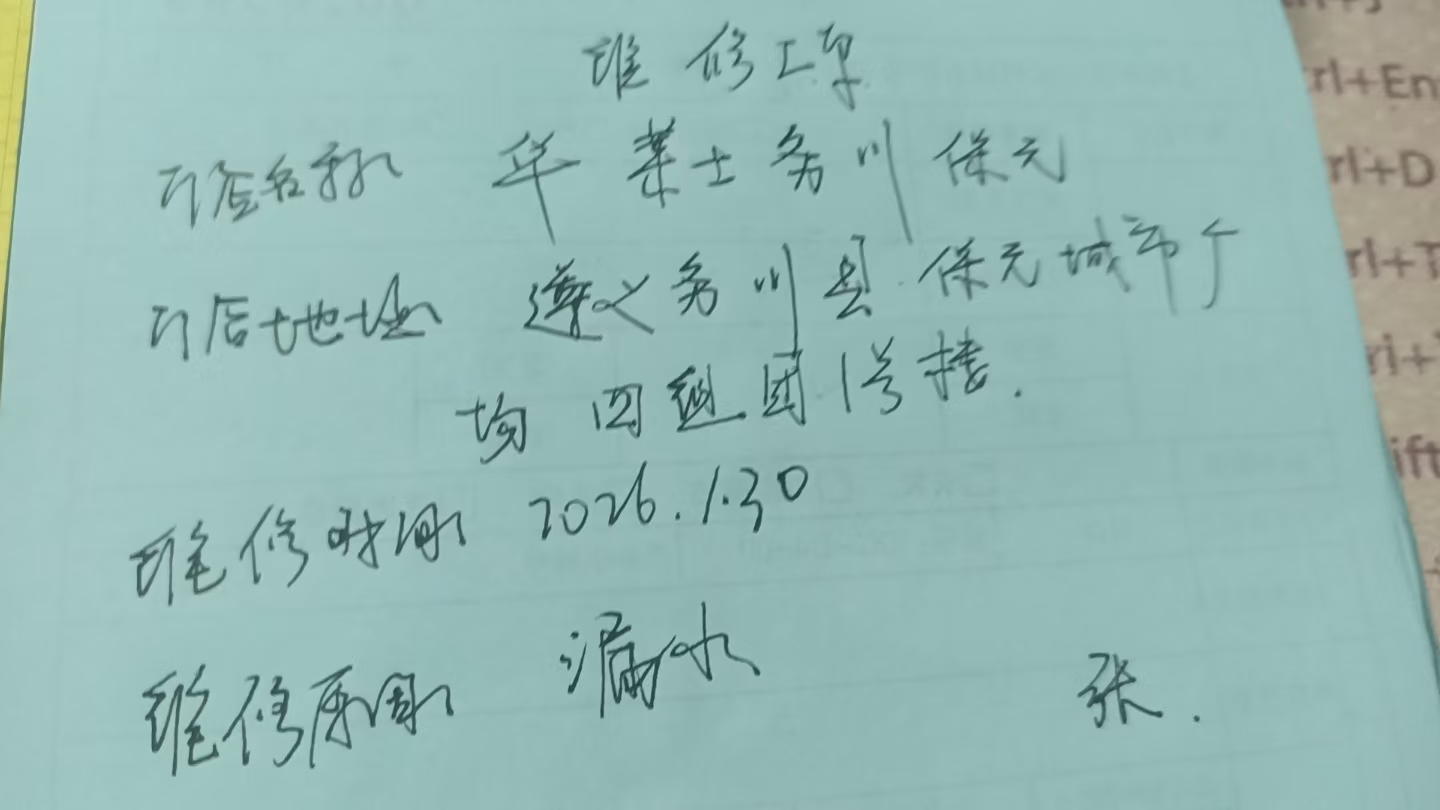 维修工单
门店名称 华莱士务川保元
门店地址 遵义务川县保元城市广
场四组团1号楼.
维修时间 2026.1.30
维修原因 漏水
张.
rl+En
rl+D
rl+T
ift